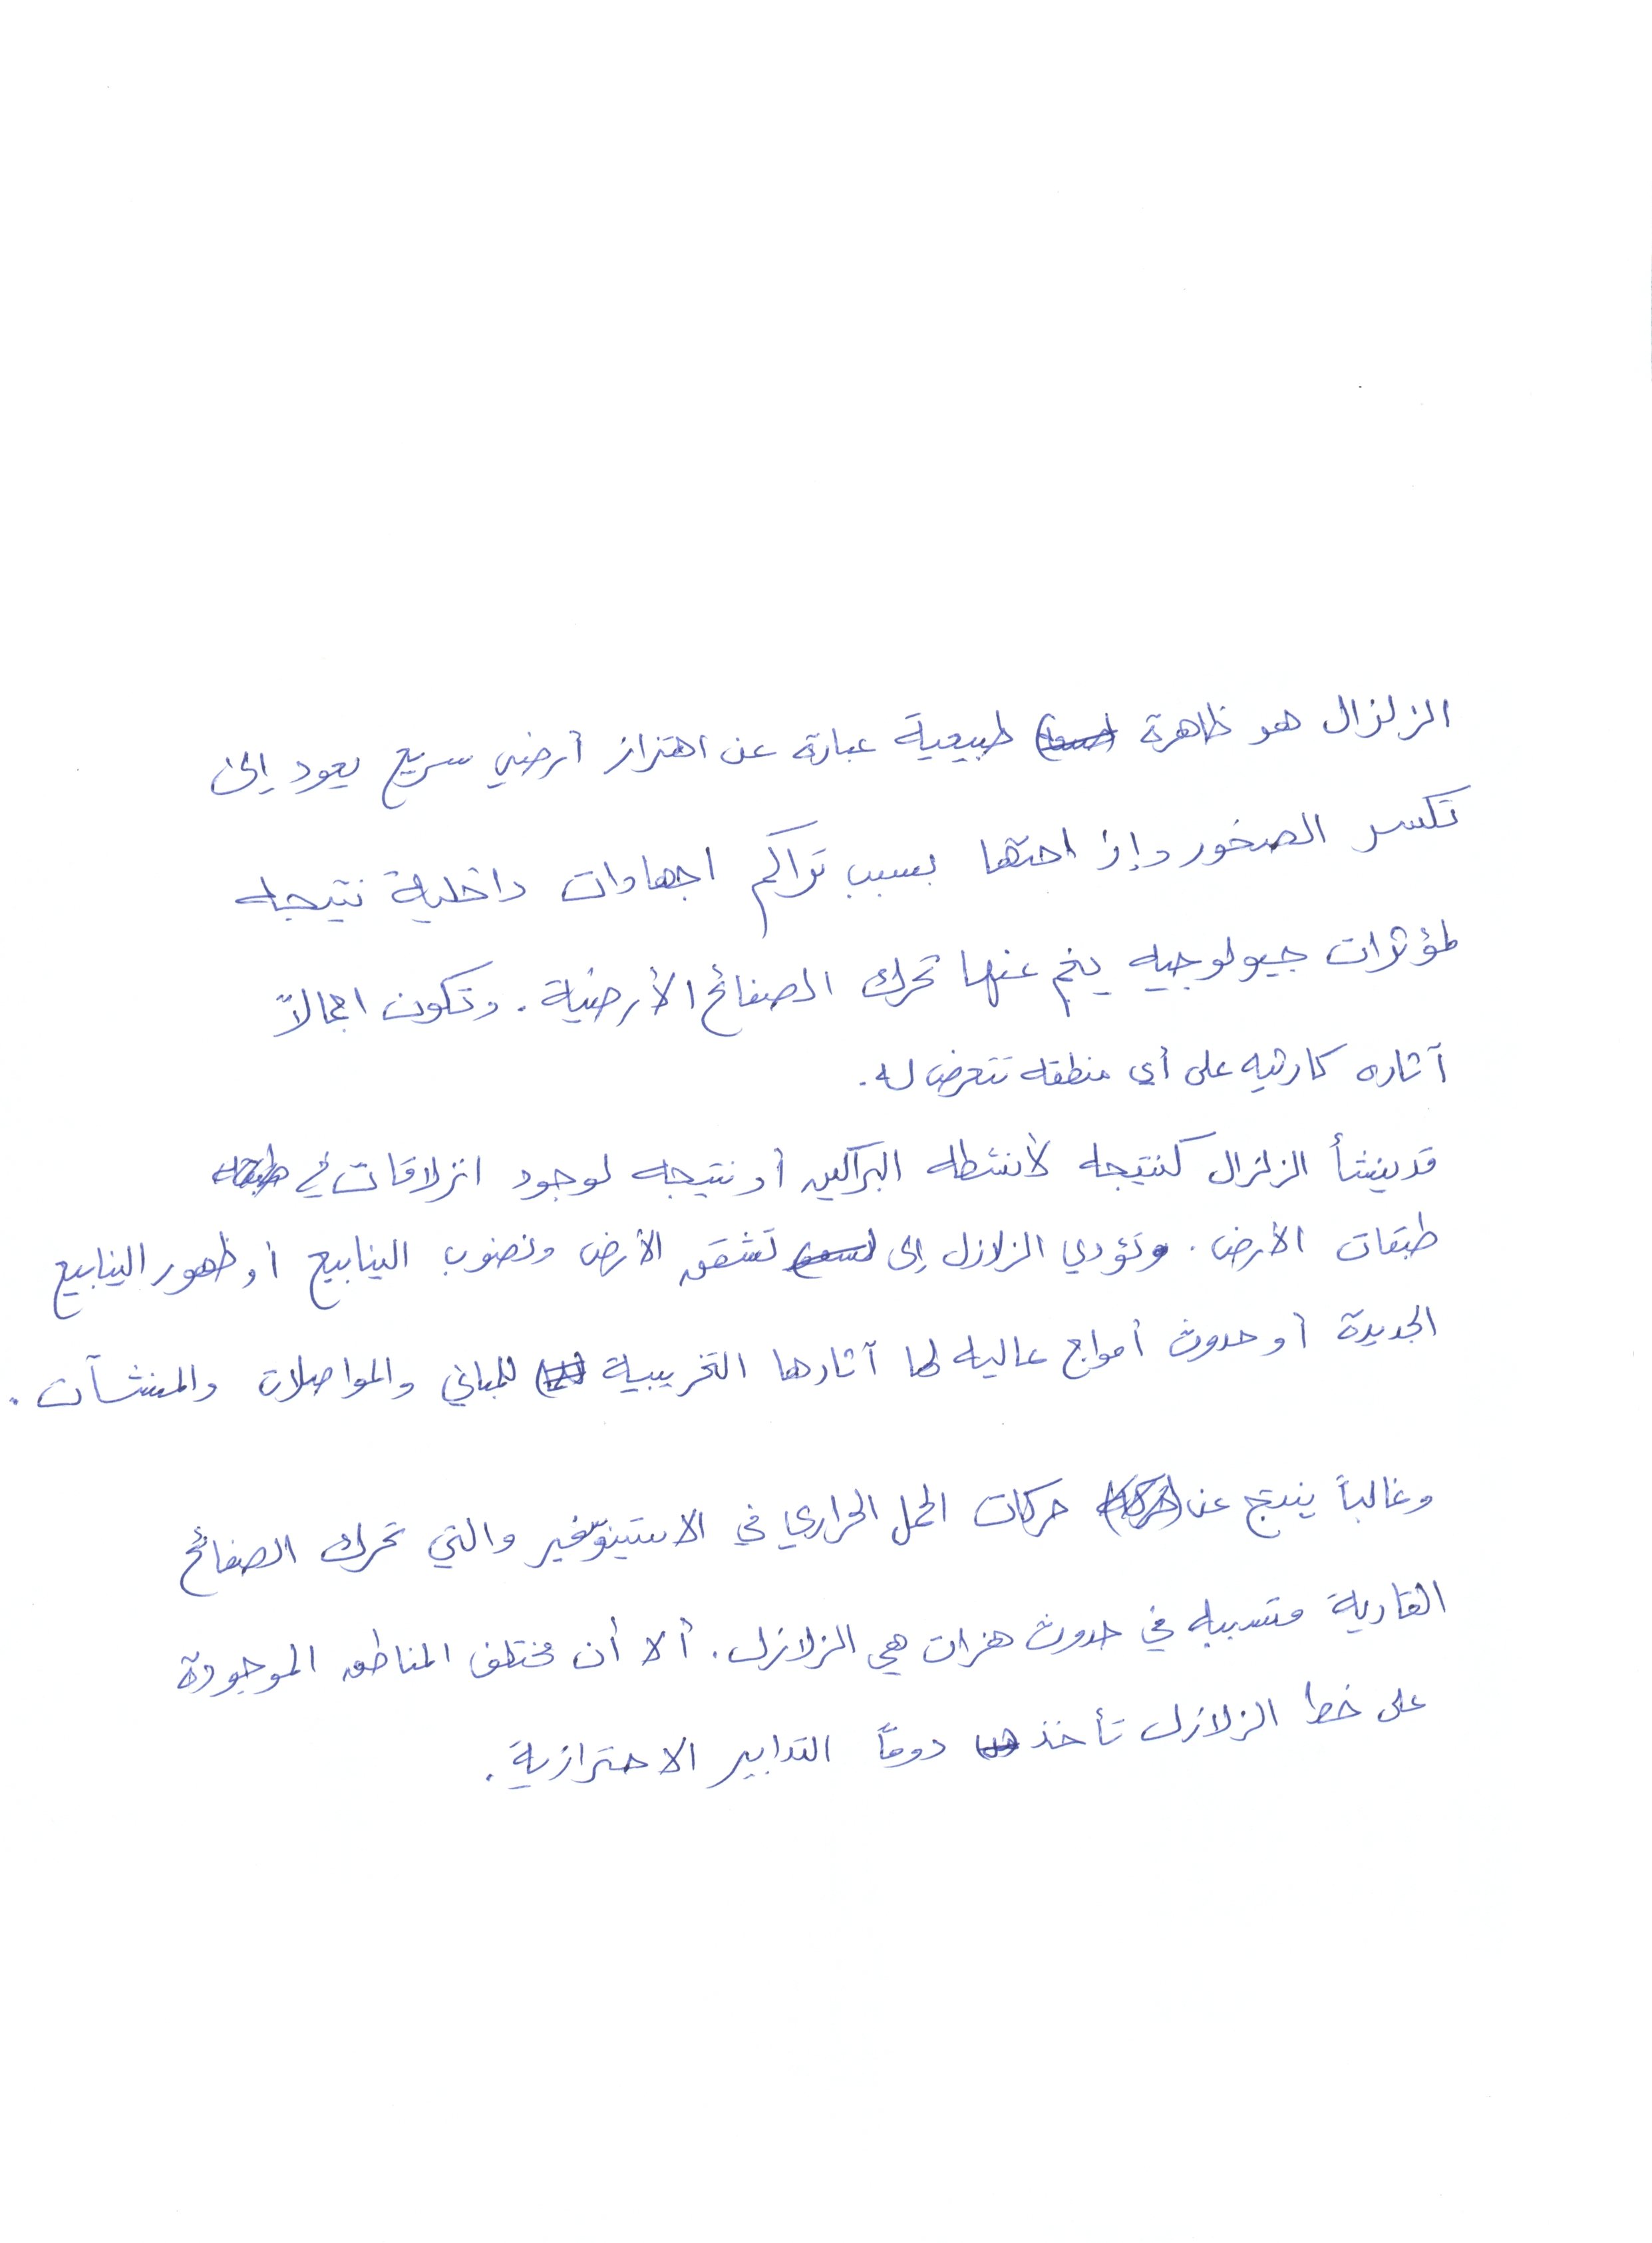 الزلزال هو ظاهرة طبيعية عبارة عن اهتزاز أرضي سريع يعود إلى
تكسر الصخور وإزاحتها بسبب تراكم اجهادات داخلية نتيجه
لمؤثرات جيولوجيه ينجم عنها تحرك الصفائح الأرضية. وتكون اجمالاً
آثاره كارثيه على أي منطقه تتعرض له.
قد ينشأ الزلزال كنتيجه لأنشطه البراكين أو نتيجه لوجود انزلاقات في
طبقات الأرض. وتؤدي الزلازل إلى تشقق الأرض ونضوب الينابيع أو ظهور الينابيع
الجديدة أو حدوث أمواج عاليه لها آثارها التخريبية للمباني والمواصلات والمنشآت.
وغالباً ينتج عن حركات الحمل الحراري في الاستينوسفير والتي تحرك الصفائح
القارية متسببه في حدوث هزات هي الزلازل. ألا أن مختلف المناطق الموجودة
على خط الزلازل تأخذ دوماً التدابير الاحترازية.